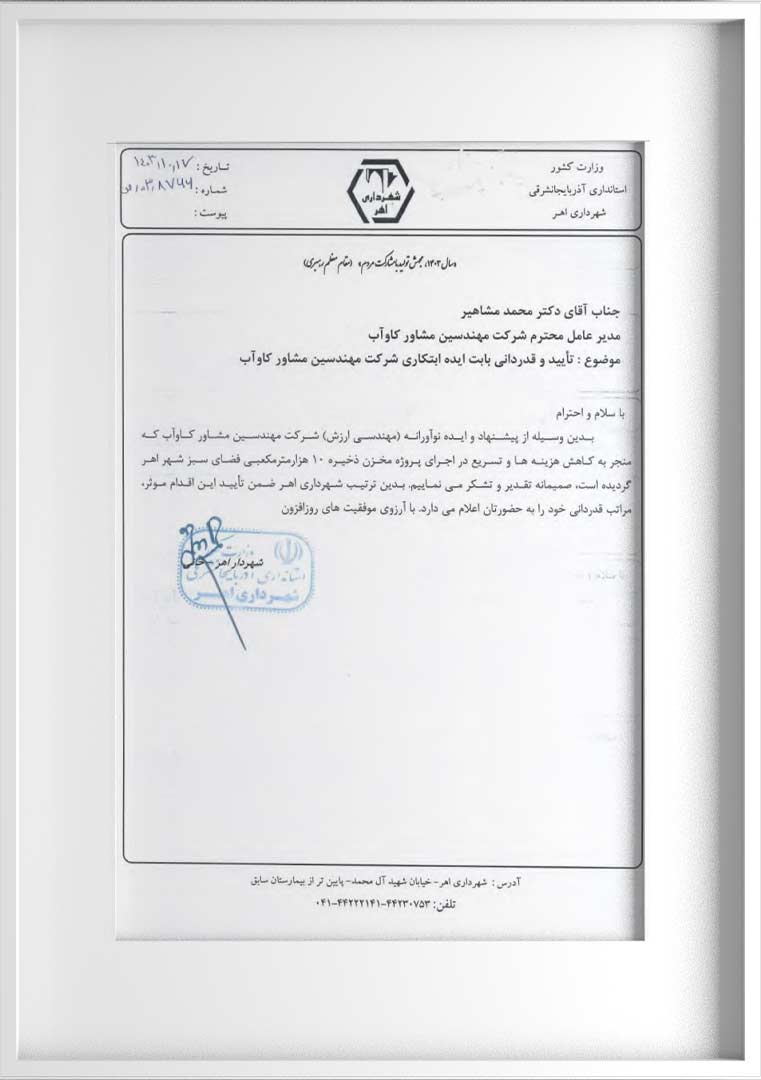 وزارت کشور
استانداری آذربایجانشرقی
شهرداری اهر
شهرداری
اهر
تاریخ : ۱۴۰۳،۱۰،۱۷
شماره :
پیوست :
«سال ۱۴۰۳، جهش تولید با مشارکت مردم» (مقام معظم رهبری)
جناب آقای دکتر محمد مشاهیر
مدیر عامل محترم شرکت مهندسین مشاور کاوآب
موضوع : تأیید و قدردانی بابت ایده ابتکاری شرکت مهندسین مشاور کاوآب
با سلام و احترام
بدین وسیله از پیشنهاد و ایده نوآورانه (مهندسی ارزش) شرکت مهندسین مشاور کاوآب که
منجر به کاهش هزینه ها و تسریع در اجرای پروژه مخزن ذخیره ۱۰ هزارمترمکعبی فضای سبز شهر اهر
گردیده است، صمیمانه تقدیر و تشکر می نماییم. بدین ترتیب شهرداری اهر ضمن تأیید این اقدام موثر،
مراتب قدردانی خود را به حضورتان اعلام می دارد. با آرزوی موفقیت های روزافزون
شهردار اهر -
وزارت
استانداری آذربایجانشرقی
شهرداری اهر
آدرس : شهرداری اهر- خیابان شهید آل محمد- پایین تر از بیمارستان سابق
تلفن: ۴۴۲۳۰۷۵۳-۴۴۲۲۲۱۴۱-۰۴۱